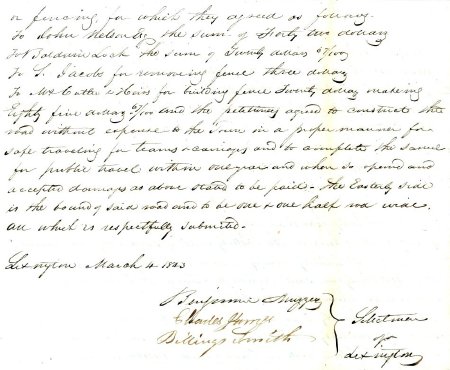 or fencing for which they agreed as follows.
To John Nelson by the sum of Forty two dollars
For Baldwin Lock the sum of Twenty dollars 67/100
To S. Jacobs for removing fence three dollars
To Mr Cutter & Heirs for building fence Twenty dollars making
Eighty five dollars 67/100 and the petitioners agreed to construct the
road without expense to the Town in a proper manner for
safe traveling for teams & carriages and to complete the same
for public travel within one year and when so opened and
accepted damages as above stated to be paid - The Easterly side
is the bound of said road and to be one & one half rod wide.
all which is respectfully submitted.
Lexington March 4 1843
Benjamin Muzzey
Charles
Billings Smith
Selectmen
of
Lexington